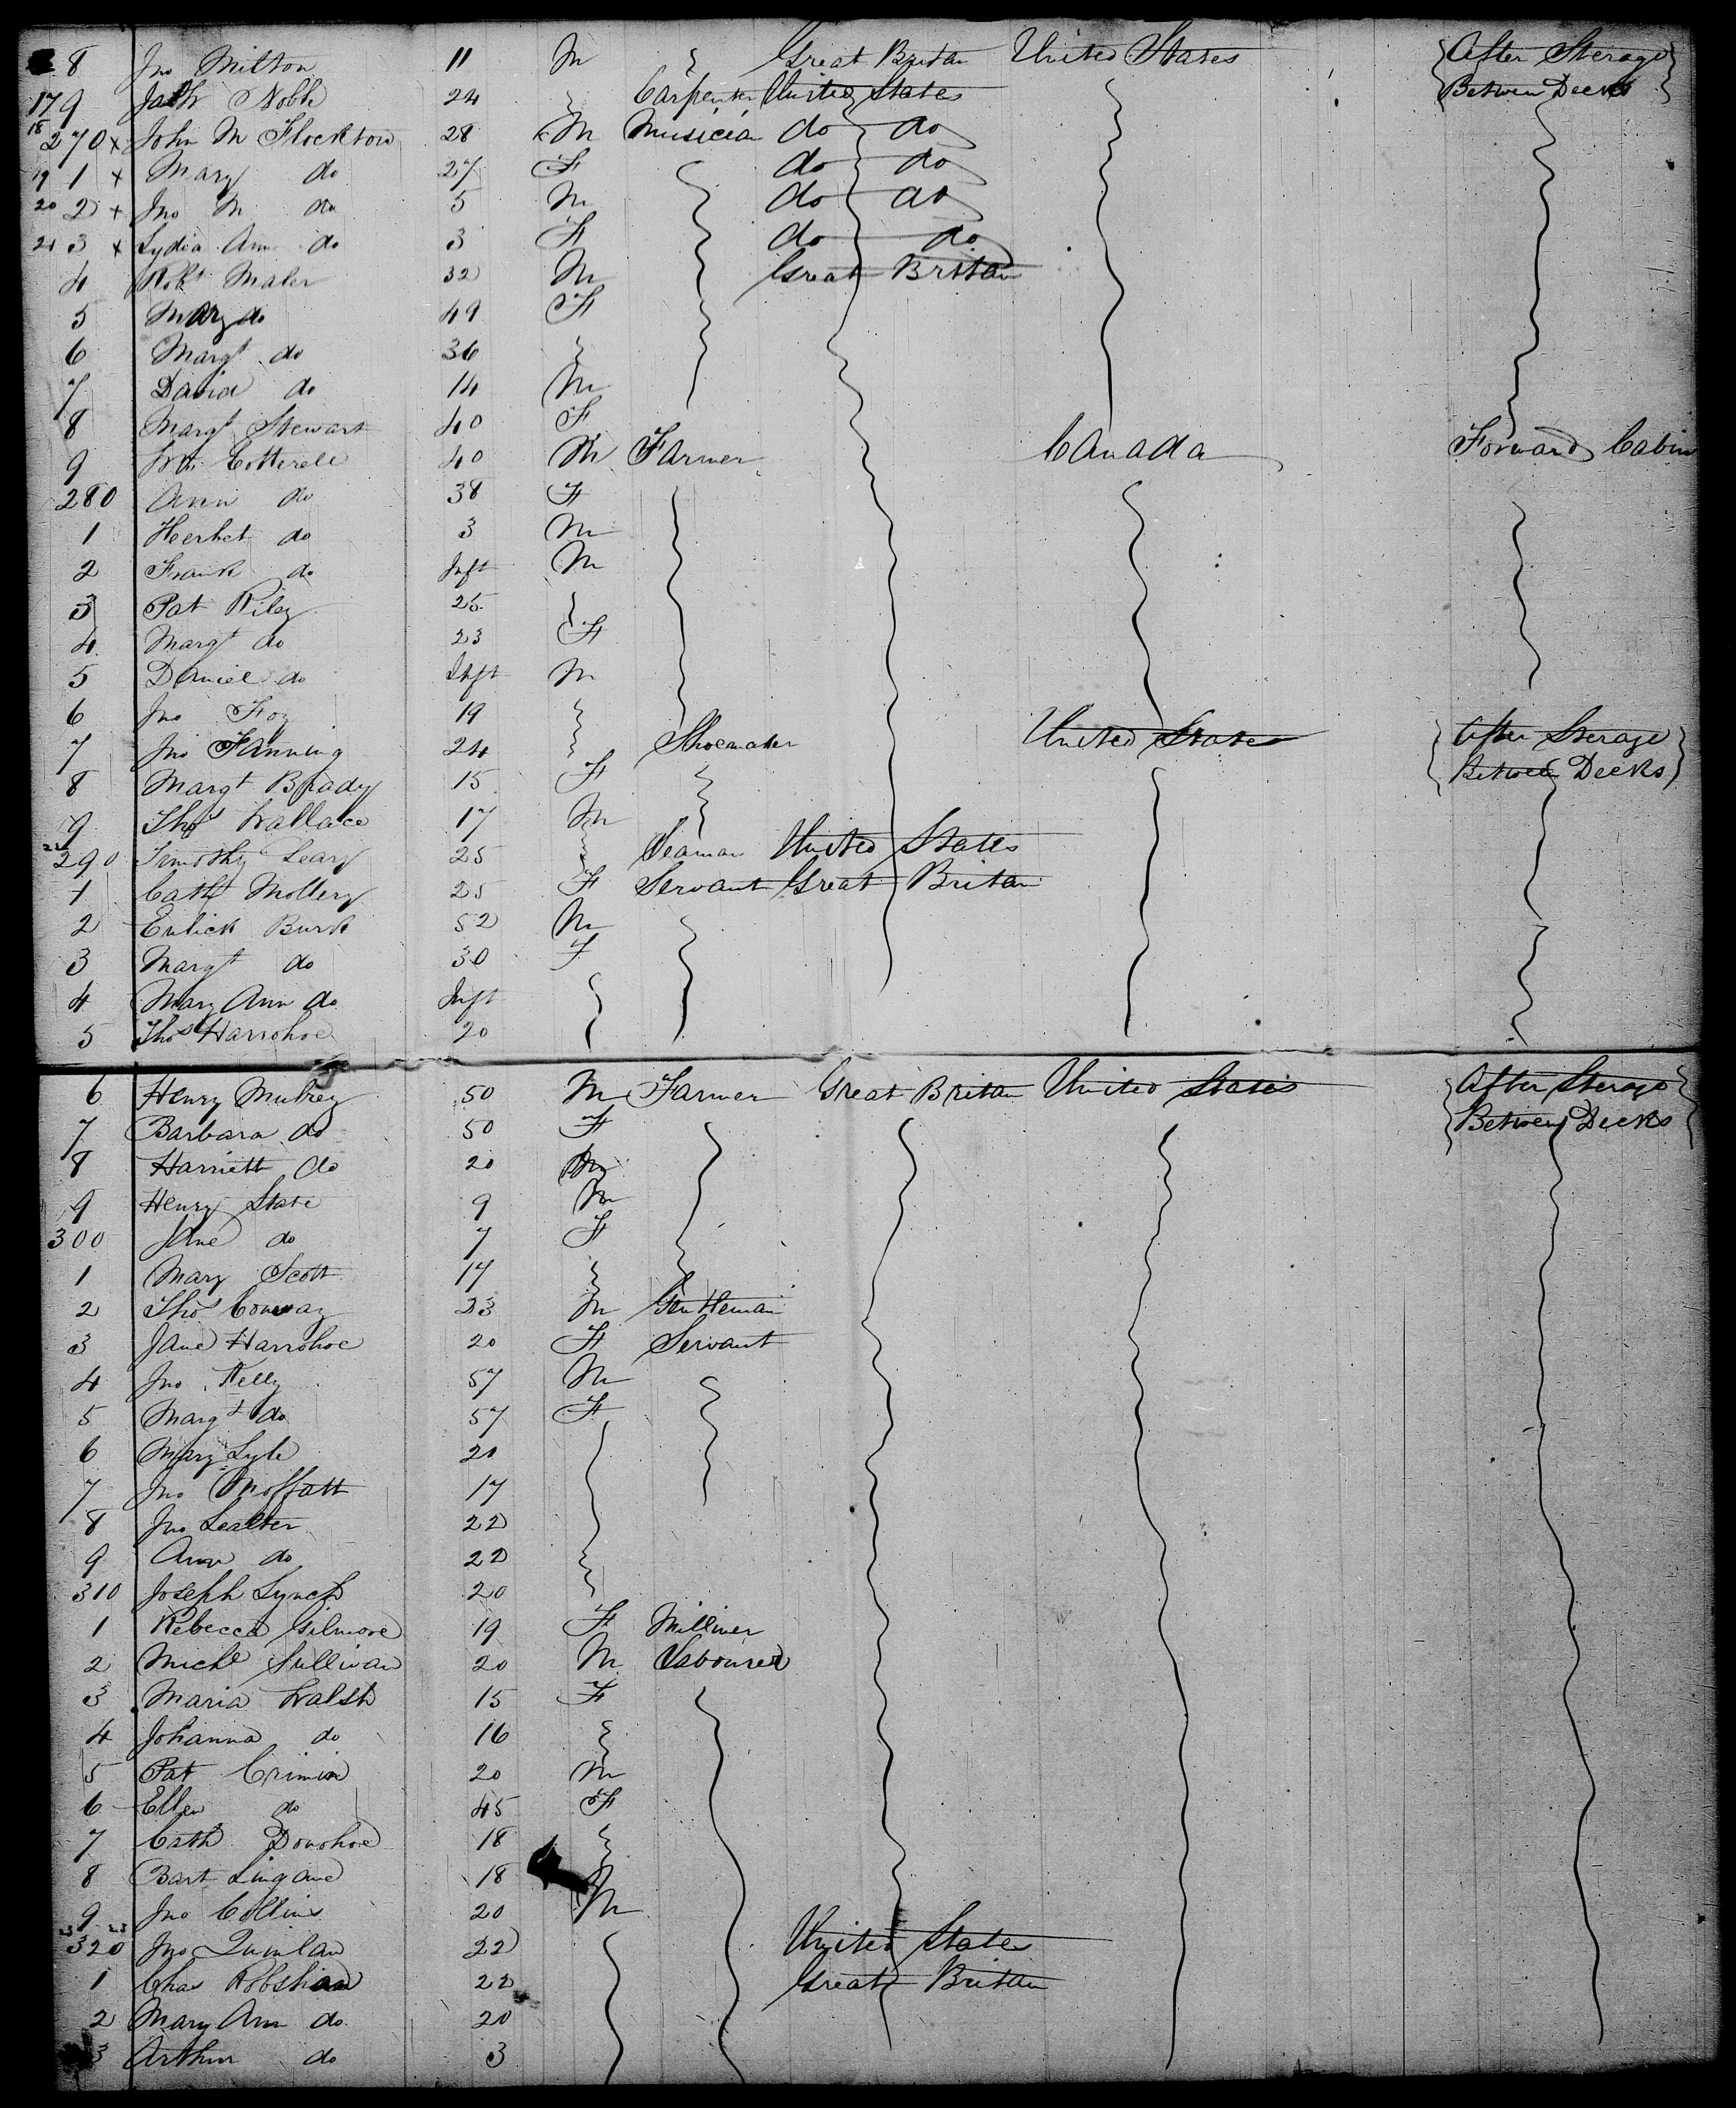 8 Jno Milton 11 M Great Britan United States {After Sterage
17 9 Jath Noble 24 Carpenter United States Betwen Decks}
18 270 x John M Flockton 28 x M Musician do do
19 1 x Mary do 27 F do do
20 2 x Jno M do 5 M do do
21 3 x Lydia Ann do 3 F do do
4 Robt Maher 32 M Great Britan
5 Mary do 49 F
6 Margt do 36
7 David do 14 M
8 Margt Stewart 40 F
9 Wm Cotterell 40 M Farmer Canada Forward Cabin
280 Ann do 38 F
1 Herbet do 3 M
2 Frank do Inft M
3 Pat Riley 25
4 Margt do 23 F
5 Daniel do Inft M
6 Jno Foy 19
7 Jno Fanning 24 Shoemaker United States {After Sterage
8 Margt Brady 15 F Between Decks}
9 Thos Wallace 17 M
22 290 Timothy Leary 25 Seaman United States
1 Cath Mollery 25 F Servant Great Britan
2 Eulick Burk 52 M
3 Margt do 30 F
4 Mary Ann do Inft
5 Thos Harrohoe 20
6 Henry Mulrey 50 M Farmer Great Britan United States {After Sterage
7 Barbara do 50 F Between Decks}
8 Harriett do 20
9 Henry State 9 M
300 Jane do 7 F
1 Mary Scott 17
2 Thos Conway 23 M Gentleman
3 Jane Harrohoe 20 F Servant
4 Jno Kelly 57 M
5 Margt do 57 F
6 Mary Lyle 21
7 Jno Moffatt 17
8 Jno Lealter 22
9 Ann do 22
310 Joseph Lynch 20
1 Rebecca Gilmore 19 F Milliner
2 Michl Sullivan 20 M Labourer
3 Maria Walsh 15 F
4 Johanna do 16
5 Pat Crimin 20 M
6 Ellen do 45 F
7 Cath Donohoe 18
8 Bart Lingane 18
9 Jno Collins 20 M
23 320 Jno Quinlan 22 United States
1 Chas Robshaw 22 Great Britan
2 Mary Ann do 20
3 Arthur do 3